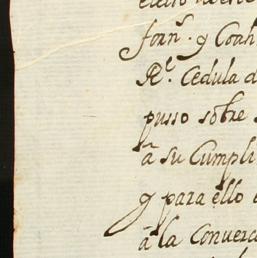 y Coah
R.ˡ Cedula d
pusso sobre
â su Cumpli
y para ello
â la Convers